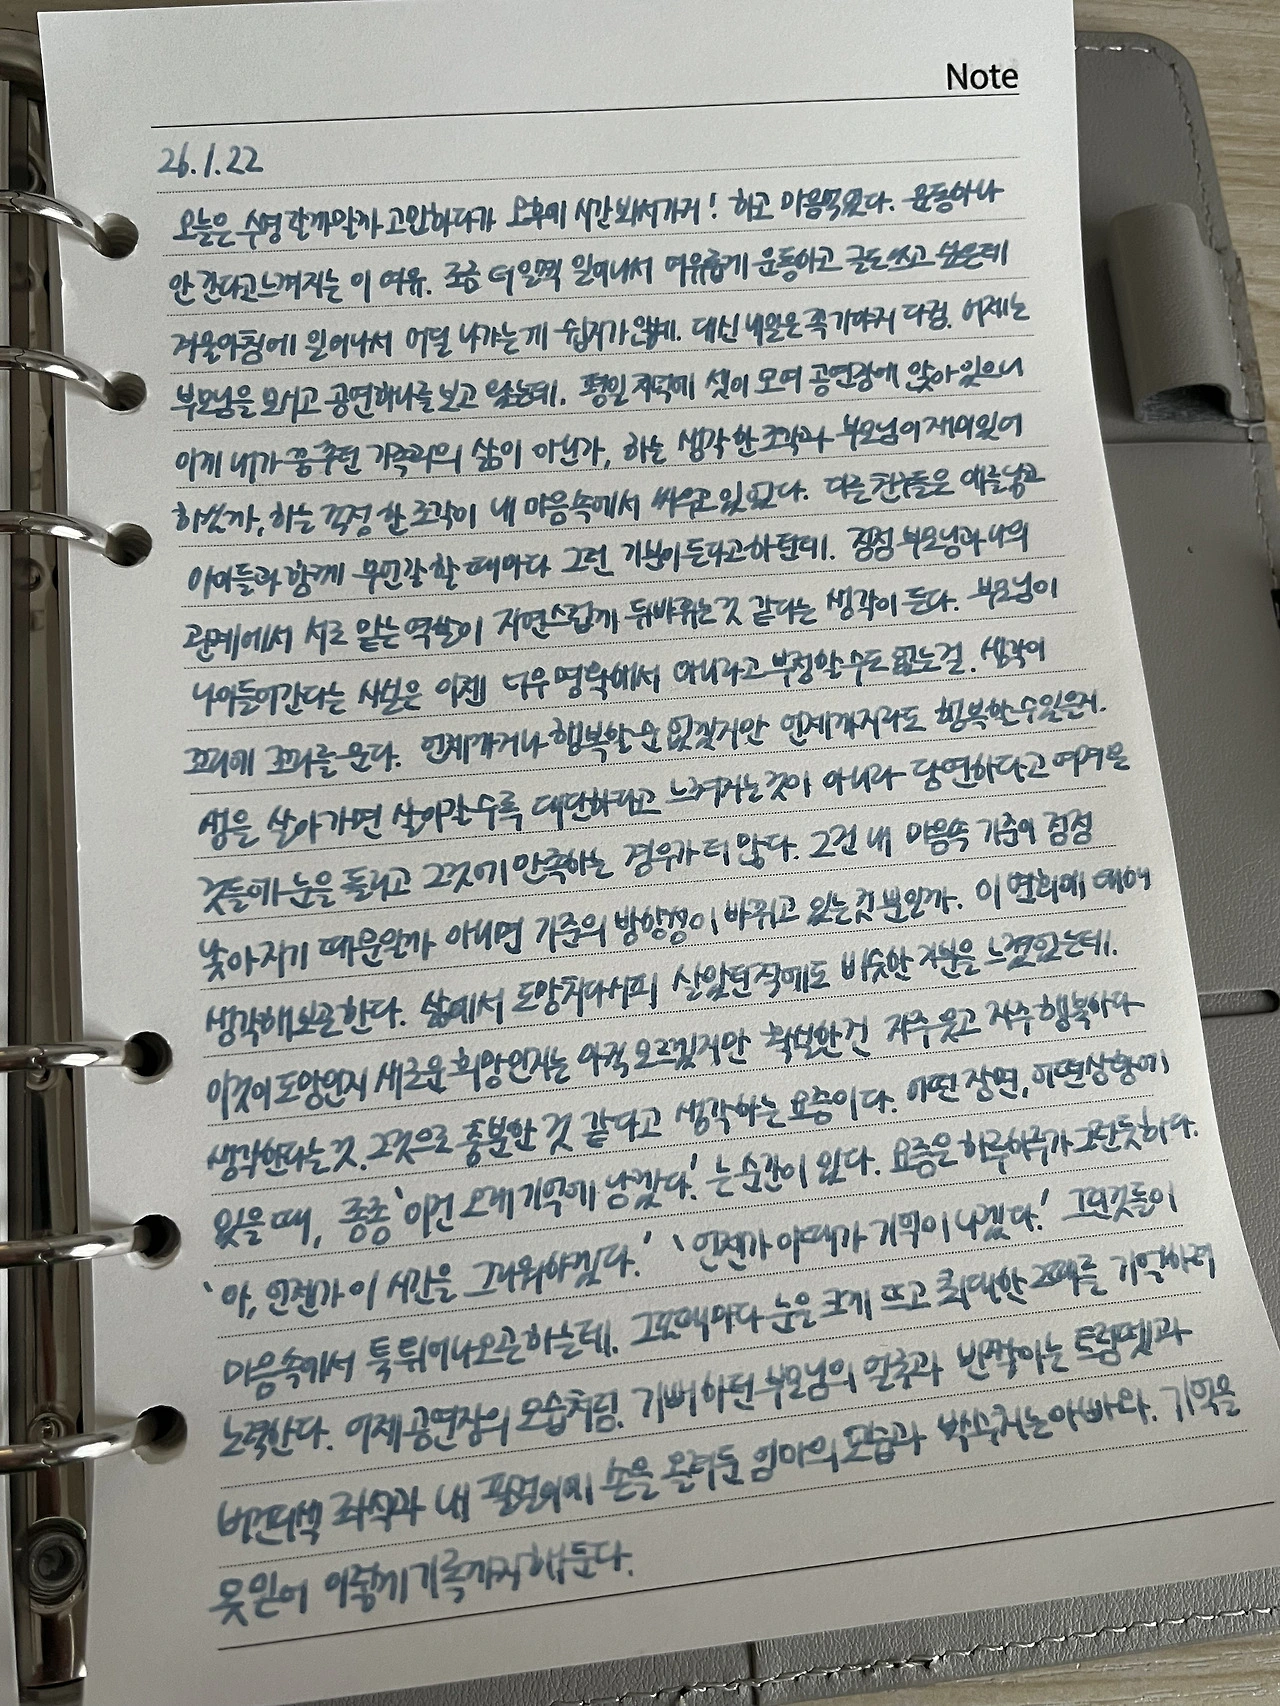 Note
26.1.22
오늘은 수영 갈까말까 고민하다가 오후에 시간봐서가자! 하고 마음먹었다. 운동하나
안 간다고 느껴지는 이 여유. 조금 더 일찍 일어나서 여유롭게 운동하고 글도 쓰고 싶은데
겨울아침에 일어나서 어딜 나가는게 쉽지가 않네. 대신 내일은 꼭 가야지 다짐. 어제는
부모님을 모시고 공연하나를 보고 왔는데. 평일 저녁에 셋이 모여 공연장에 앉아있으니
이게 내가 꿈꾸던 가족과의 삶이 아닌가, 하는 생각 한 조각과 부모님이 재미있어
하실까, 하는 걱정 한 조각이 내 마음속에서 싸우고 있었다. 다른 친구들은 애를 낳고
아이들과 함께 무언갈 할 때마다 그런 기분이 든다고 하던데. 점점 부모님과 나의
관계에서 서로 맡는 역할이 자연스럽게 뒤바뀌는 것 같다는 생각이 든다. 부모님이
나이들어간다는 사실은 이젠 너무 명확해서 아니라고 부정할 수도 없는걸. 생각이
꼬리에 꼬리를 문다. 언제까지나 행복할 순 없겠지만 언제까지라도 행복할 수 있은지.
생을 살아가면 살아갈수록 대단하다고 느껴지는 것이 아니라 당연하다고 여겨온
것들에 눈을 돌리고 그것에 만족하는 경우가 더 많다. 그건 내 마음속 기준이 점점
낮아지기 때문일까 아니면 기준의 방향성이 바뀌고 있는 것 뿐일까. 이 변화에 대해
생각해보곤 한다. 삶에서 도망치다시피 살았던 적에도 비슷한 기분을 느꼈었는데.
이것이 도망인지 새로운 희망인지는 아직 모르겠지만 확실한 건 자주 웃고 자주 행복하다
생각한다는 것. 그것으로 충분한 것 같다고 생각하는 요즘이다. 어떤 장면, 어떤 상황에
있을 때, 종종 '이건 오래 기억에 남겠다.' 는 순간이 있다. 요즘은 하루하루가 그런듯하다.
'아, 언젠가 이 시간을 그리워하겠다.' '언젠가 이때가 기억이 나겠다.' 그런것들이
마음속에서 툭 튀어나오곤 하는데. 그럴때마다 눈을 크게 뜨고 최대한 그때를 기억하려
노력한다. 어제 공연장의 모습처럼. 기뻐하던 부모님의 얼굴과 반짝이는 트럼펫과
버건디색 좌석과 내 팔 위에 손을 올려둔 엄마의 모습과 박수치는 아빠와. 기억을
못 믿어 이렇게 기록까지 해둔다.